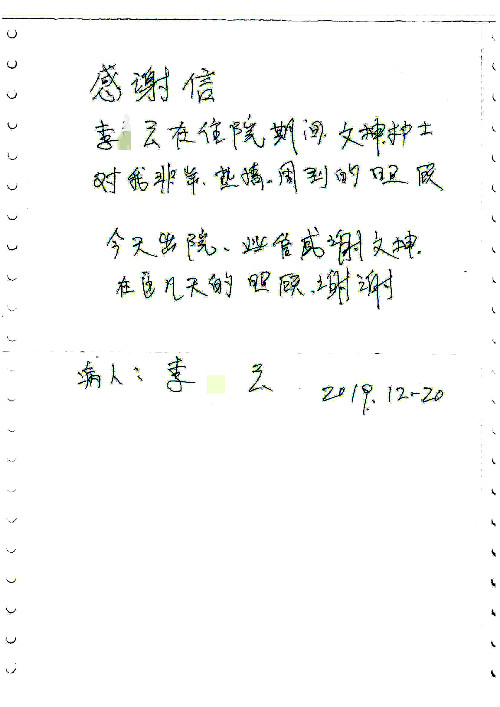 感谢信
李 云在住院期间.文神护士
对我非常.热情.周到的照顾
今天出院、非常感谢文神.
在这几天的照顾.谢谢
病人:李 云 2019.12-20